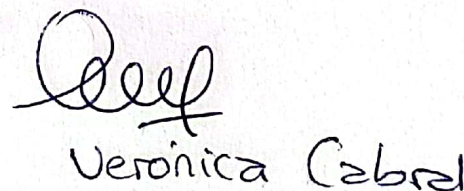 Verónica Cabral